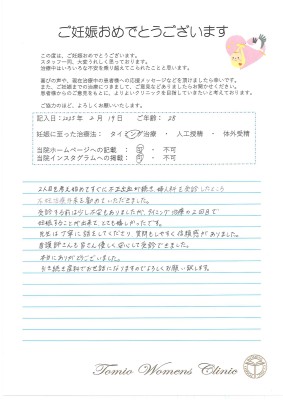 ご妊娠おめでとうございます
この度は、ご妊娠おめでとうございます。
スタッフ一同、大変うれしく思っております。
治療中はいろいろな不安を乗り越えてこられたことと思います。
喜びの声や、現在治療中の患者様への応援メッセージなどを頂けましたら幸いです。
また、ご妊娠までの治療につきまして、ご意見などありましたらお聞かせください。
患者様からのご意見をもとに、よりよいクリニックを目指していきたいと考えております。
ご協力のほど、よろしくお願いいたします。
記入日：2025年 2月 19日 ご年齢：28
妊娠に至った治療法： タイミング治療 ・ 人工授精 ・ 体外受精
当院ホームページへの記載 ： 可 ・ 不可
当院インスタグラムへの掲載 ： 可 ・ 不可
2人目を考え始めてすぐに不正出血が続き、婦人科を受診したところ
不妊治療外来を勧めていただきました。
受診する前は少し不安もありましたが、タイミング治療の2回目で
妊娠することが出来て、とても嬉しかったです。
先生は丁寧に話をしてくださり、質問もしやすく信頼感がありました。
看護師さんも皆さん優しく安心して受診できました。
本当にありがとうございました。
引き続き産科でお世話になりますのでよろしくお願い致します。
Tomio Womens Clinic